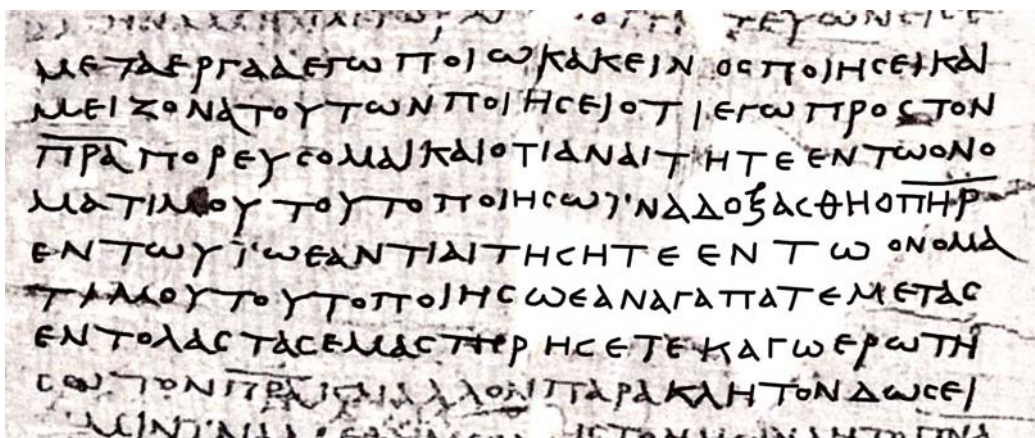 ΜΕΤΑΕΡΓΑΑΕΓΩΠΟΙΩΚΑΚΕΙΝΟϹΠΟΙΗϹΕΙΚΑΙ
ΜΕΙΖΟΝΑΤΟΥΤΩΝΠΟΙΗϹΕΙΟΤΙΕΓΩΠΡΟϹΤΟΝ
Π̅Ρ̅Α̅ΠΟΡΕΥϹΟΜΑΙΚΑΙΟΤΙΑΝΑΙΤΗΤΕΕΝΤΩΟΝΟ
ΜΑΤΙΜΟΥΤΟΥΤΟΠΟΙΗϹΩΪΝΑΔΟΞΑϹΘΗΟΠ̅Η̅Ρ̅
ΕΝΤΩΥΪΩΕΑΝΤΙΑΙΤΗϹΗΤΕΕΝΤΩΟΝΟΜΑ
ΤΙΜΟΥΤΟΥΤΟΠΟΙΗϹΩΕΑΝΑΓΑΠΑΤΕΜΕΤΑϹ
ΕΝΤΟΛΑϹΤΑϹΕΜΑϹΤΗΡΗϹΕΤΕΚΑΓΩΕΡΩΤΗ
ϹΩΤΟΝΠ̅Ρ̅Α̅ΚΑΙΑΛΛΟΝΠΑΡΑΚΛΗΤΟΝΔΩϹΕΙ